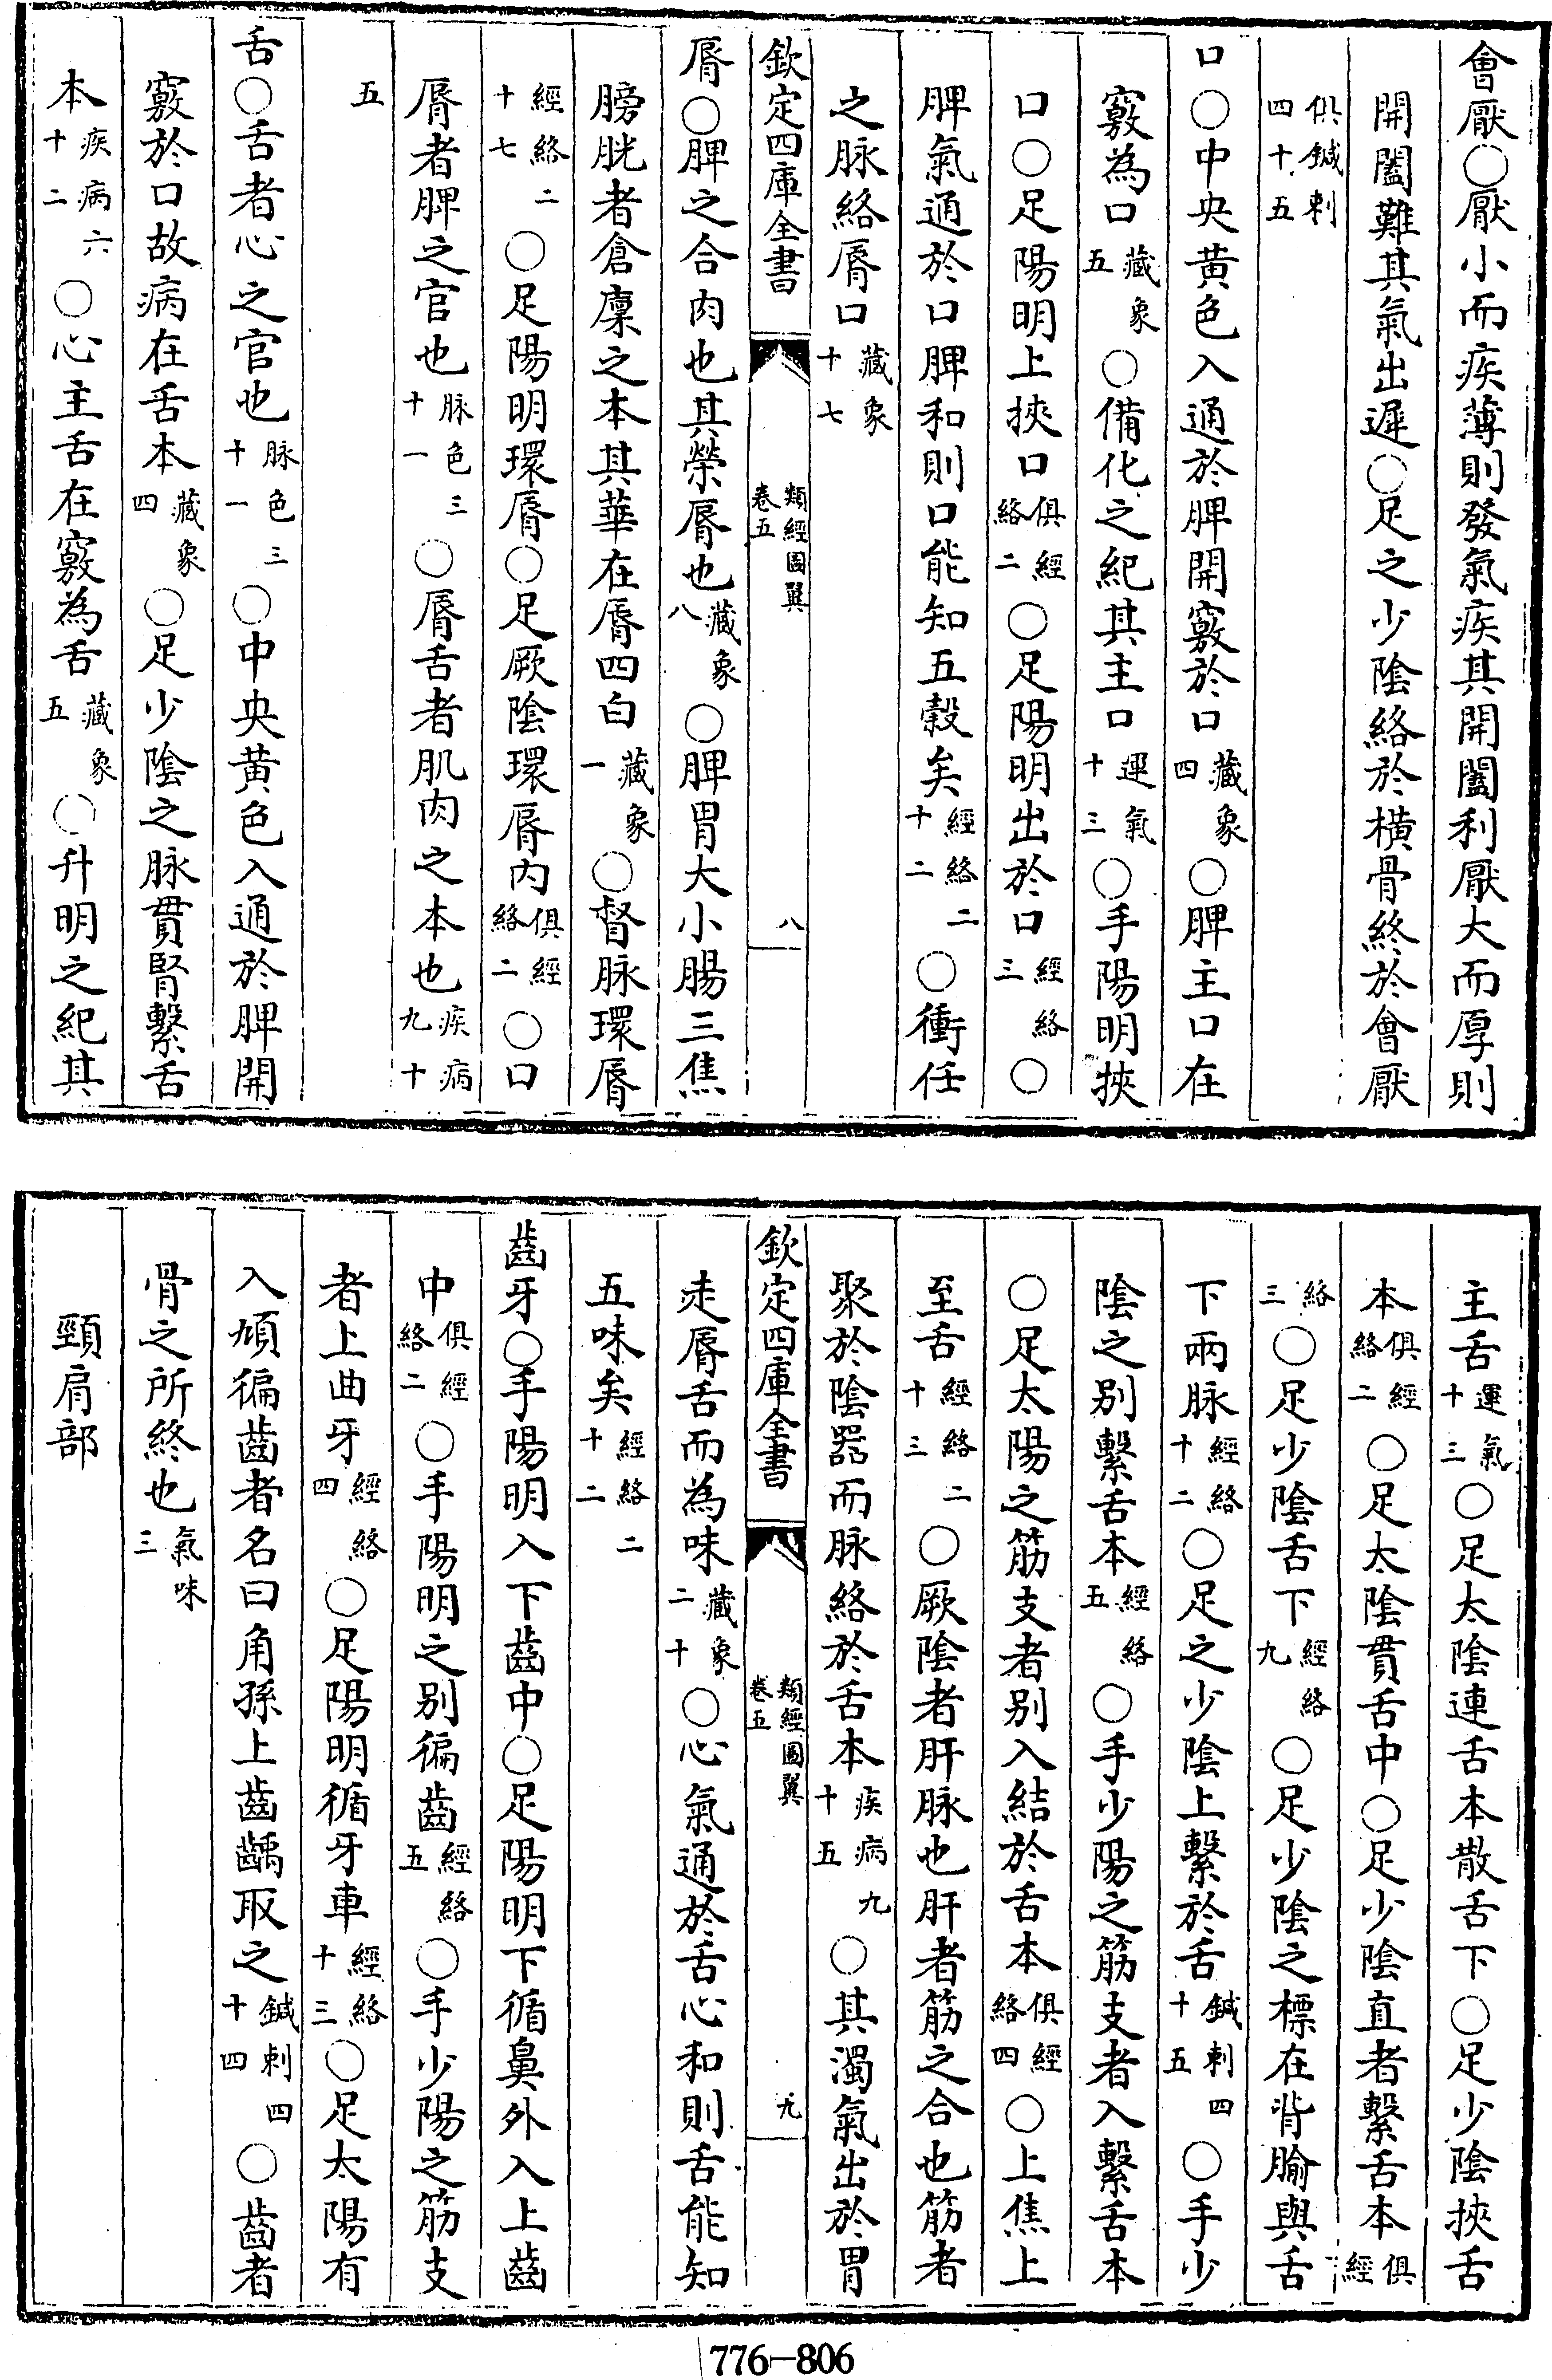 會厭○厭小而疾薄則發氣疾其開闔利厭大而厚則
開闔難其氣出遲○足之少陰絡於橫骨終於會厭
俱鍼刺四十五
口○中央黃色入通於脾開竅於口藏象四○脾主口在
竅為口藏象五○備化之紀其主口運氣十三○手陽明挾
口○足陽明上挾口俱經絡二○足陽明出於口經絡三○
脾氣通於口脾和則口能知五穀矣經絡二十二○衝任
之脉絡脣口藏象十七
欽定四庫全書 類經圖翼卷五 八
脣○脾之合肉也其榮脣也藏象八○脾胃大小腸三焦
膀胱者倉廩之本其華在脣四白藏象一○督脉環脣
經絡二十七○足陽明環脣○足厥陰環脣內俱經絡二○口
脣者脾之官也脉色三十一○脣舌者肌肉之本也疾病九十
五
舌○舌者心之官也脉色三十一○中央黃色入通於脾開
竅於口故病在舌本藏象四○足少陰之脉貫腎繫舌
本疾病六十二○心主舌在竅為舌藏象五○升明之紀其
主舌運氣十三○足太陰連舌本散舌下○足少陰挾舌
本俱經絡二○足太陰貫舌中○足少陰直者繫舌本俱經
絡三○足少陰舌下經絡九○足少陰之標在背腧與舌
下兩脉經絡十二○足之少陰上繫於舌鍼刺四十五○手少
陰之別繫舌本經絡五○手少陽之筋支者入繫舌本
○足太陽之筋支者別入結於舌本俱經絡四○上焦上
至舌經絡二十三○厥陰者肝脉也肝者筋之合也筋者
聚於陰器而脉絡於舌本疾病九十五○其濁氣出於胃
欽定四庫全書 類經圖翼卷五 九
走脣舌而為味藏象二十○心氣通於舌心和則舌能知
五味矣經絡二十二
齒牙○手陽明入下齒中○足陽明下循鼻外入上齒
中俱經絡二○手陽明之別徧齒經絡五○手少陽之筋支
者上曲牙經絡四○足陽明循牙車經絡十三○足太陽有
入頄徧齒者名曰角孫上齒齲取之鍼刺四十四○齒者
骨之所終也氣味三
頸肩部
776-806